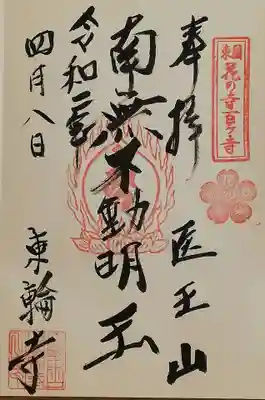 奉拝
東国花の寺百ヶ寺
医王山
南無不動明王
令和二年
四月八日
東輪寺